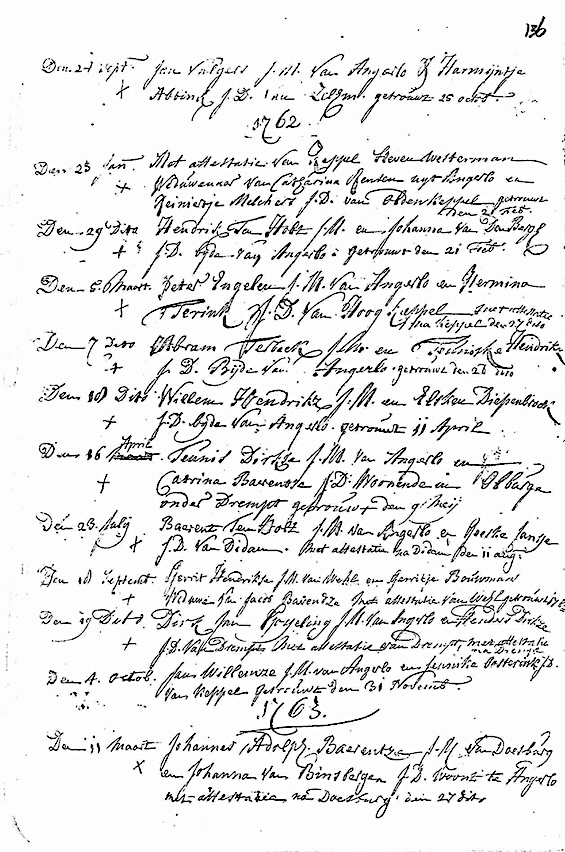 136
Den 24 Sept. Jan J.M. van Angerlo & Harmijntje
Abbink J.D. van Zelhm. getrouwt 25 octob.
1762
Den 23 Jan. Met attestatie van Keppel Steven Westerman
Weduwenaer van Catharina Renten uyt Angerlo en
Reinietje Melchers J.D. van Olden Keppel getrouwt
den 21 Feb
Den 29 Dito Hendrik Ten Holt J.M. en Johanna van Den Bergh
J.D. byde van Angerlo getrouwt den 21 Feb.
Den 5 Maart. Peter Engelen J.M. van Angerlo en Hermina
Terink J.D. van Hoog Keppel met attestatie
na Keppel den 27 dito
Den 7 Dito Abram J.M. en Hendriks
J.D. Byde van Angerlo getrouwt den 26 dito
Den 18 Dito Willem Hendrikz J.M. en Elsken Diepenbroek
J.D. byde van Angerlo. getrouwt 11 April
Den 16 April Teunis Dirkze J.M. van Angerlo en
Catrina Barentse J.D. Woonende in Olburgen
onder Drempt getrouwt den 9 Mey
Den 23 July Barent Ten Holt J.M. van Angerlo en Geeske Janse
J.D. van Didam. Met attestatie na Didam den 11 aug.
Den 18 Septemb. Gerrit Hendrikse J.M. van Wehl en Gerritje Bouwman
Weduwe van Jacob Barentze met attestatie van Wehl getrouwt
Den 19 Dito. Dirk Jan J.M. van Angerlo en Henders Dirkze
J.D. van Drempt Met attestatie van Drempt, met attestatie
na Drempt
Den 4. octob. Jan Willemze J.M. van Angerlo en Jenneke Oosterink J.D.
van Keppel getrouwt den 31 Novemb.
1763.
Den 11 Maart Johannes Adolph Barentze J.M. van Doesburg
en Johanna van Binsbergen J.D. woont te Angerlo
met attestatie na Doesburg den 27 dito